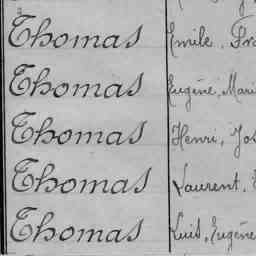 Thomas Emile, Fra
Thomas Eugène, Mari
Thomas Henri, Jos
Thomas Laurent,
Thomas Luis, Eugène